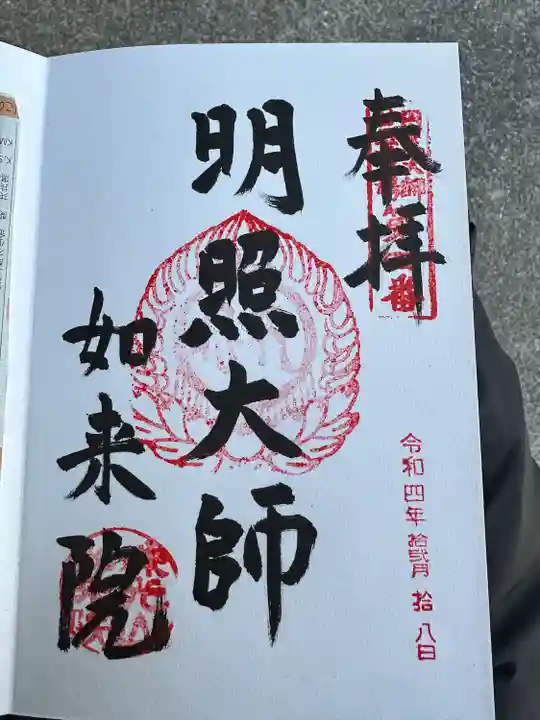 奉拝
令和四年 拾弐月 拾八日
明照大師
如来院